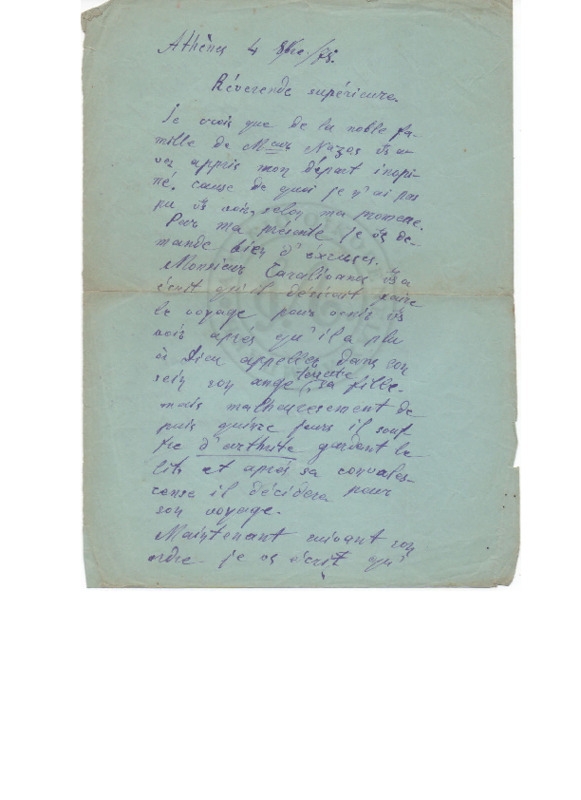 Athènes 4
Révérende supérieure.
Je vois que de la noble fa-
mille de Meur Nazos vs a-
vez appris mon départ inopi-
né, cause de quoi je n'ai pas
pu vs voir, selon ma promesse.
Par ma présente je vs de-
mande bien d'excuses.
Monsieur vs a
écrit qu'il désirait faire
le voyage pour venir vs
voir après qu'il a plu
à Dieu appeller dans son
sein son ange terrestre, sa fille.
mais malheuresement de
puis quinze jours il souf
fre d'arthrite gardant le
lits et après sa convales-
cense il décidera pour
son voyage.
Maintenant suivant son
ordre je vs écrit qu'